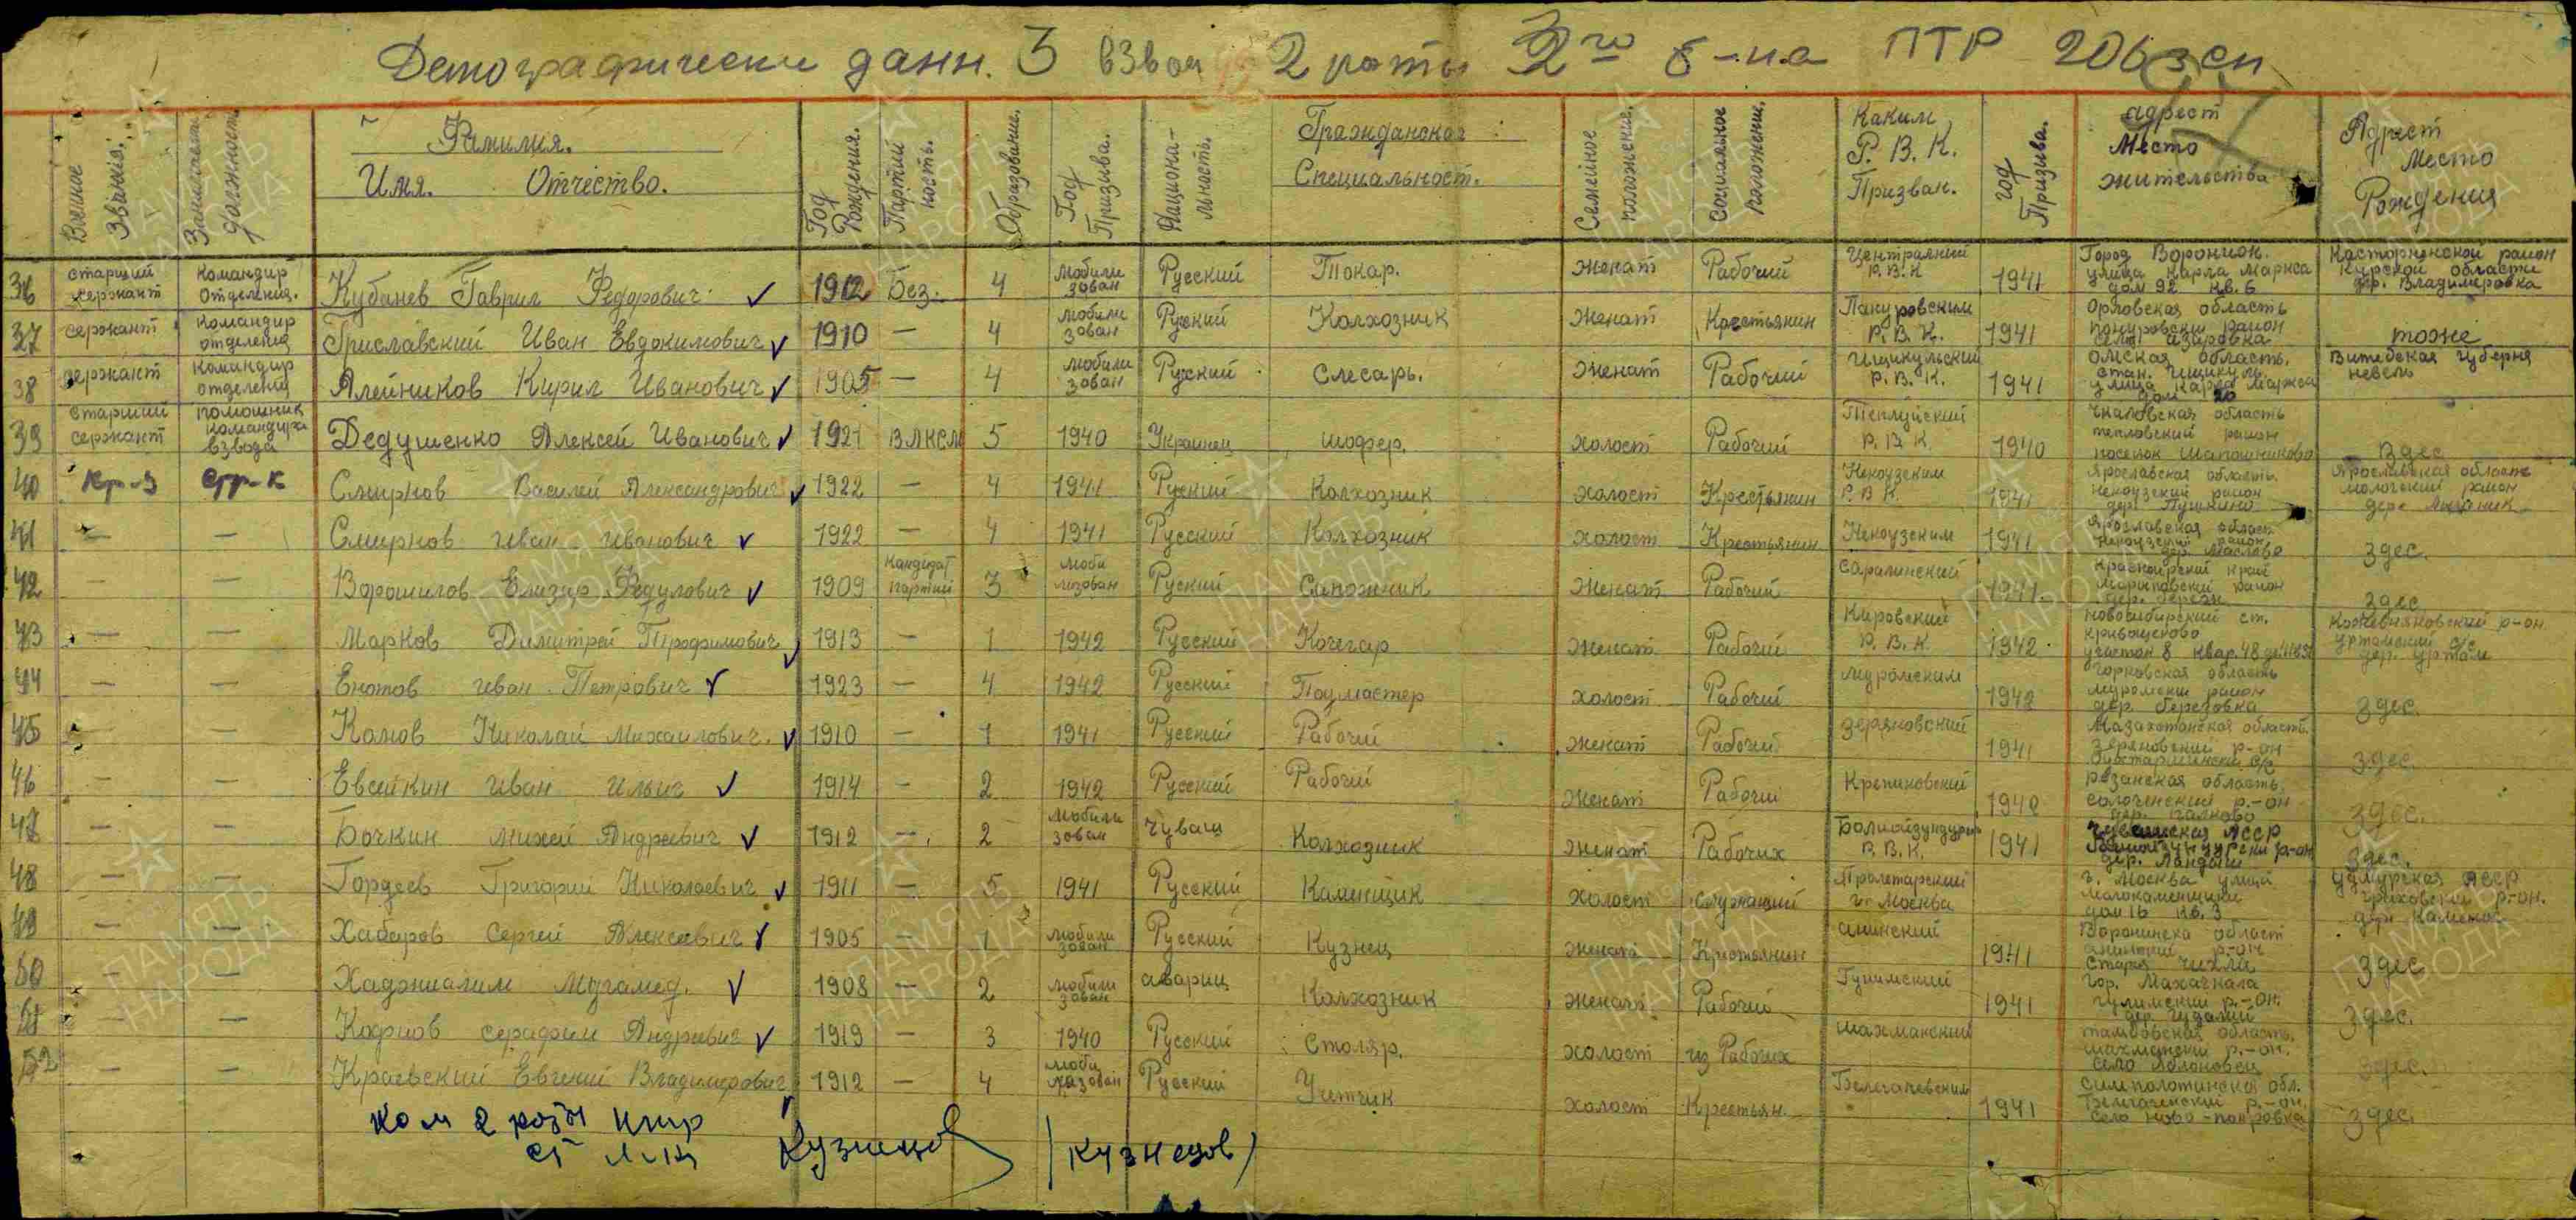 Демографически данн. 3 взвод 2 роты 2го б-на ПТР 206 зсп
Военное Званiя.
Занимаем должность
Фамилия.
Имя. Отчество.
Год Рождения.
Партий ность.
Образование.
Год Призыва.
Национа-льность.
Гражданская
Специальност.
Семейное положение.
Социальное положение.
Каким
Р. В. К.
Призван.
год Призыва.
адрест
Место
жительства
Адрест
Место
Рождения
36 старший сержант командир отделения. Кубанев Гаврил Федорович 1912 Без. 4 мобили зован Русский Токар. женат Рабочий Центральний Р.В.К 1941 Город Воронион. улица Карла Маркса дом 92 кв. 6 Касторненской район Курской области дер. Владимировка
37 сержант командир отделения Гриславский Иван Евдокимович 1910 — 4 мобили зован Руский Колхозник Женат Крестьянин Р.В.К. 1941 Орловская область район тоже
38 сержант командир отделения Алейников Кирил Иванович 1905 — 4 мобили зован Руский Слесарь. Женат Рабочий Ищикульский Р.В.К. 1941 Омская область. стан. Ищикуль. улица Карла Маркса дом 20 Витебская губерня невель
39 старший сержант помошник командира взвода Дедушенко Алексей Иванович 1921 ВЛКСМ 5 1940 Украинец шофер. холост Рабочий Р.В.К 1940 область район поселок Шапошниково Здес
40 Кр-з Стр-к Смирнов Василий Александрович 1922 — 4 1941 Руский Колхозник холост Крестьянин Некоузским Р.В.К. 1941 Ярославская область. Некоузский район дер. Пушкино Ярославская область мологский район дере
41 — — Смирнов Иван Иванович 1922 — 4 1941 Русский Колхозник холост Крестьянин Некоузским 1941 Ярославская област Некоузский район дер. Маслово Здес.
42 — — Ворошилов Елизар Федулович 1909 Кандидат партий 3 моби лизован Руский Сапожник Женат Рабочий Саралинский 1941 Красноярский край район дер. Здес
43 — — Марков Димитрей Трофимович 1913 — 1 1942 Русский Кочегар женат Рабочий Кировский Р.В.К 1942 новосибирский ст. Кривощеково участок 8 квар. 48 Кожевняковский р-он. Уртамский с/с дер. Уртам
44 — — Енотов Иван Петрович 1923 — 4 1942 Русский Подмастер холост Рабочий Муромским 1942 Горковская область муромский район дер. Березовка Здес.
45 — — Конов Николай Михаилович. 1910 — 1 1941 Русский Рабочий женат Рабочий Зеряновский 1941 область. Зеряновский р-он Здес
46 — — Евсейкин Иван Ильич 1914 — 2 1942 Русский Рабочий Женат Рабочий 1942 Рязанская область. р.-он Здес.
47 — — Бочкин Михей Андреевич 1912 — 2 мобили зован Чуваш Колхозник женат Рабочих Р.В.К. 1941 Чувашская АССР р-он Здес.
48 — — Гордеев Григорий Николаевич 1911 — 5 1941 Русский Каменщик Холост служащий Пролетарский г. Москва г. Москва улица дом 16 кв. 3 Удмурская АССР р-он. дер. Каменое
49 — — Хабаров Сергей Алексеевич 1905 — 1 мобили зован Русский Кузнец женат Крестьянин анинский 1941 област анинский р-он Старая Чигла Здес
50 — — Хаджиалим Мугамед. 1908 — 2 мобили зован авариц Колхозник женат Рабочий 1941 гор. Махачкала р-он. Здес.
51 — — Кофнов серафим Андреевич 1919 — 3 1940 Русский Столяр. холост из Рабочих шахманский 1941 тамбовская область. р.-он. село Яблоновец Здес.
52 — — Краевский Евгений Владимерович 1912 — 4 моби лизован Русский Учетчик холост Крестьян. 1941 обл. р-он. село ново-покровка Здес.
Ком 2 роты птр
ст л-нт Кузнецов /Кузнецов/